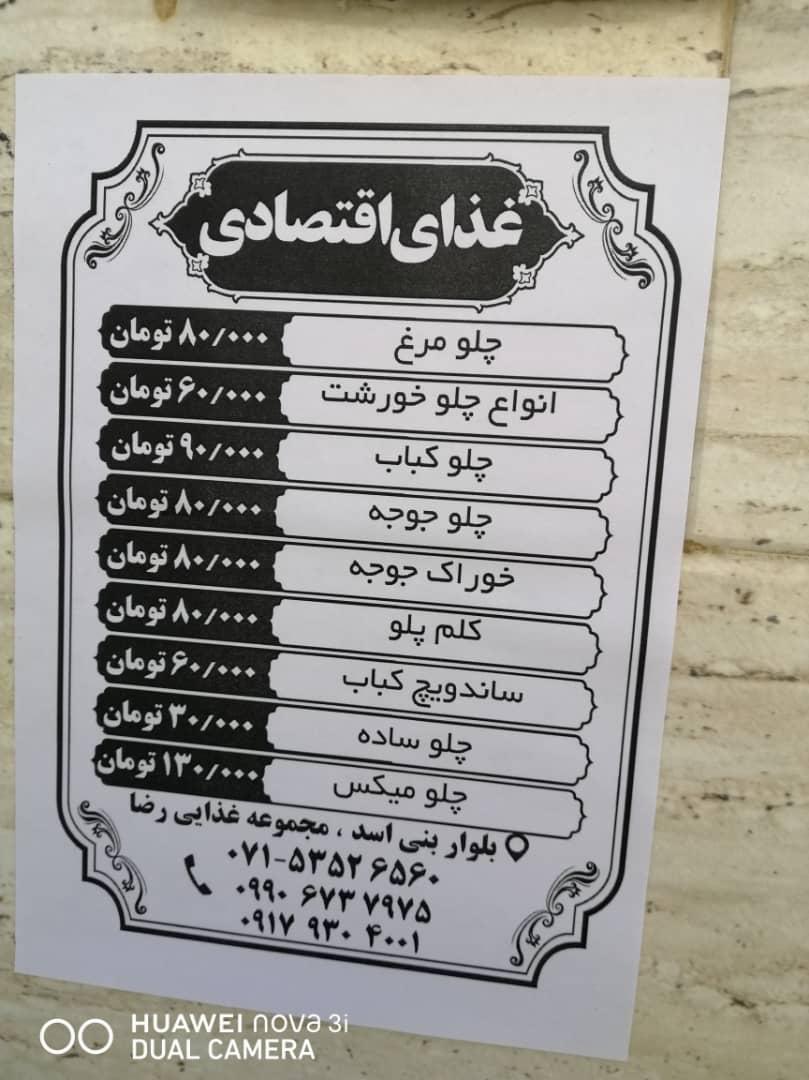 غذای اقتصادی
چلو مرغ ۸۰/۰۰۰ تومان
انواع چلو خورشت ۶۰/۰۰۰ تومان
چلو کباب ۹۰/۰۰۰ تومان
چلو جوجه ۸۰/۰۰۰ تومان
خوراک جوجه ۸۰/۰۰۰ تومان
کلم پلو ۸۰/۰۰۰ تومان
ساندویچ کباب ۶۰/۰۰۰ تومان
چلو ساده ۳۰/۰۰۰ تومان
چلو میکس ۱۳۰/۰۰۰ تومان
بلوار بنی اسد ، مجموعه غذایی رضا
۰۷۱-۵۳۵۲ ۶۵۶۰
۰۹۹۰ ۶۷۳ ۷۹۷۵
۰۹۱۷ ۹۳۰ ۴۰۰۱
HUAWEI nova 3i
DUAL CAMERA